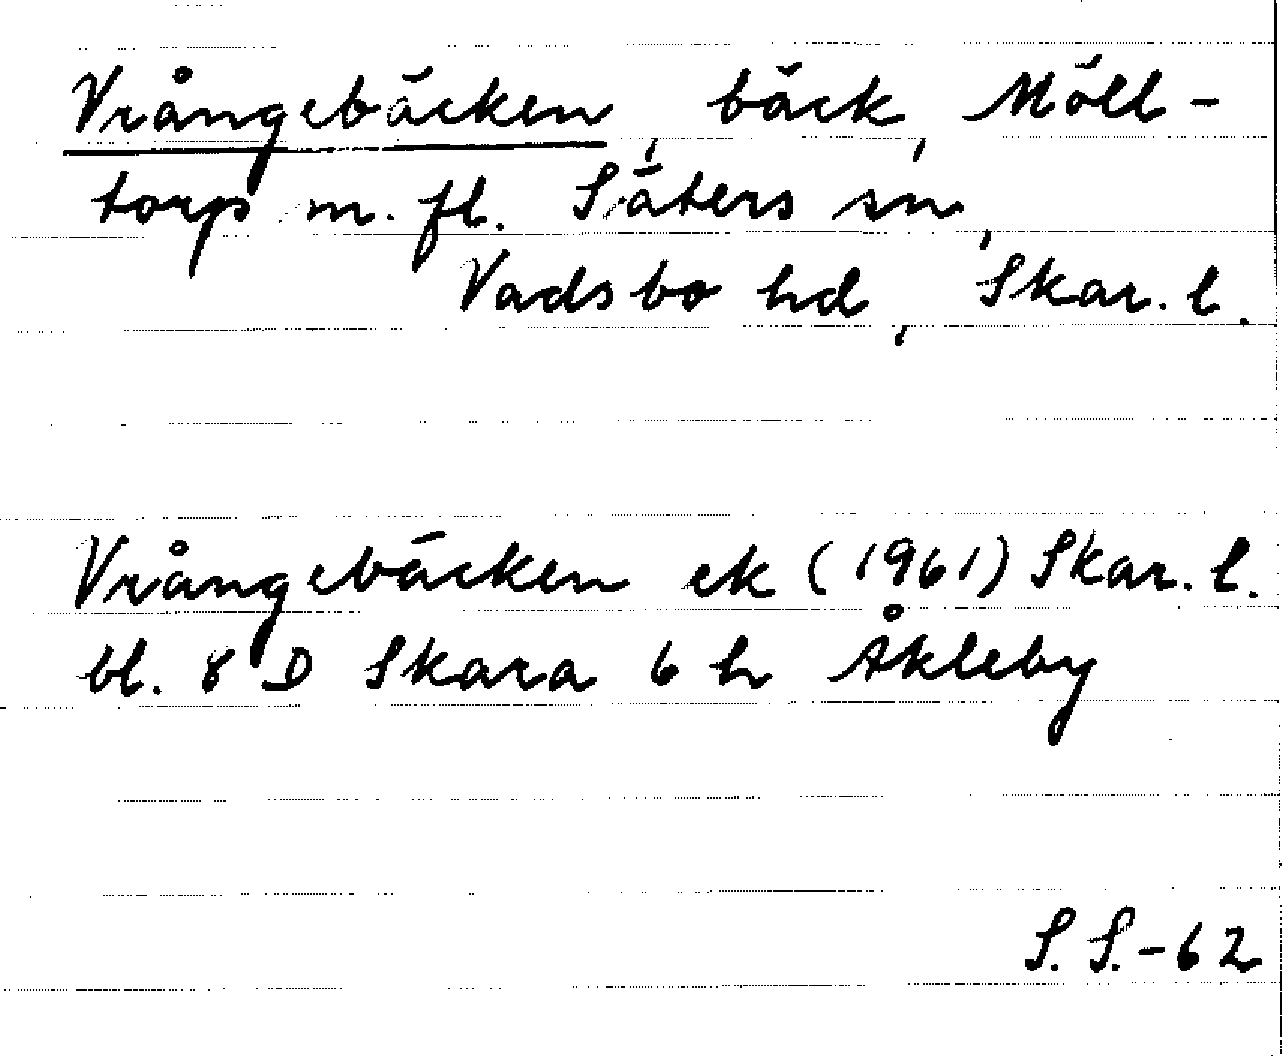 Vrångebäcken, bäck, Möll-
torp m. fl. Säters sn,
Vadsbo hd, Skar. l.
Vrångebäcken ek (1961) Skar. l.
bl. 8 D Skara 6 h Åkleby
S. S. -62